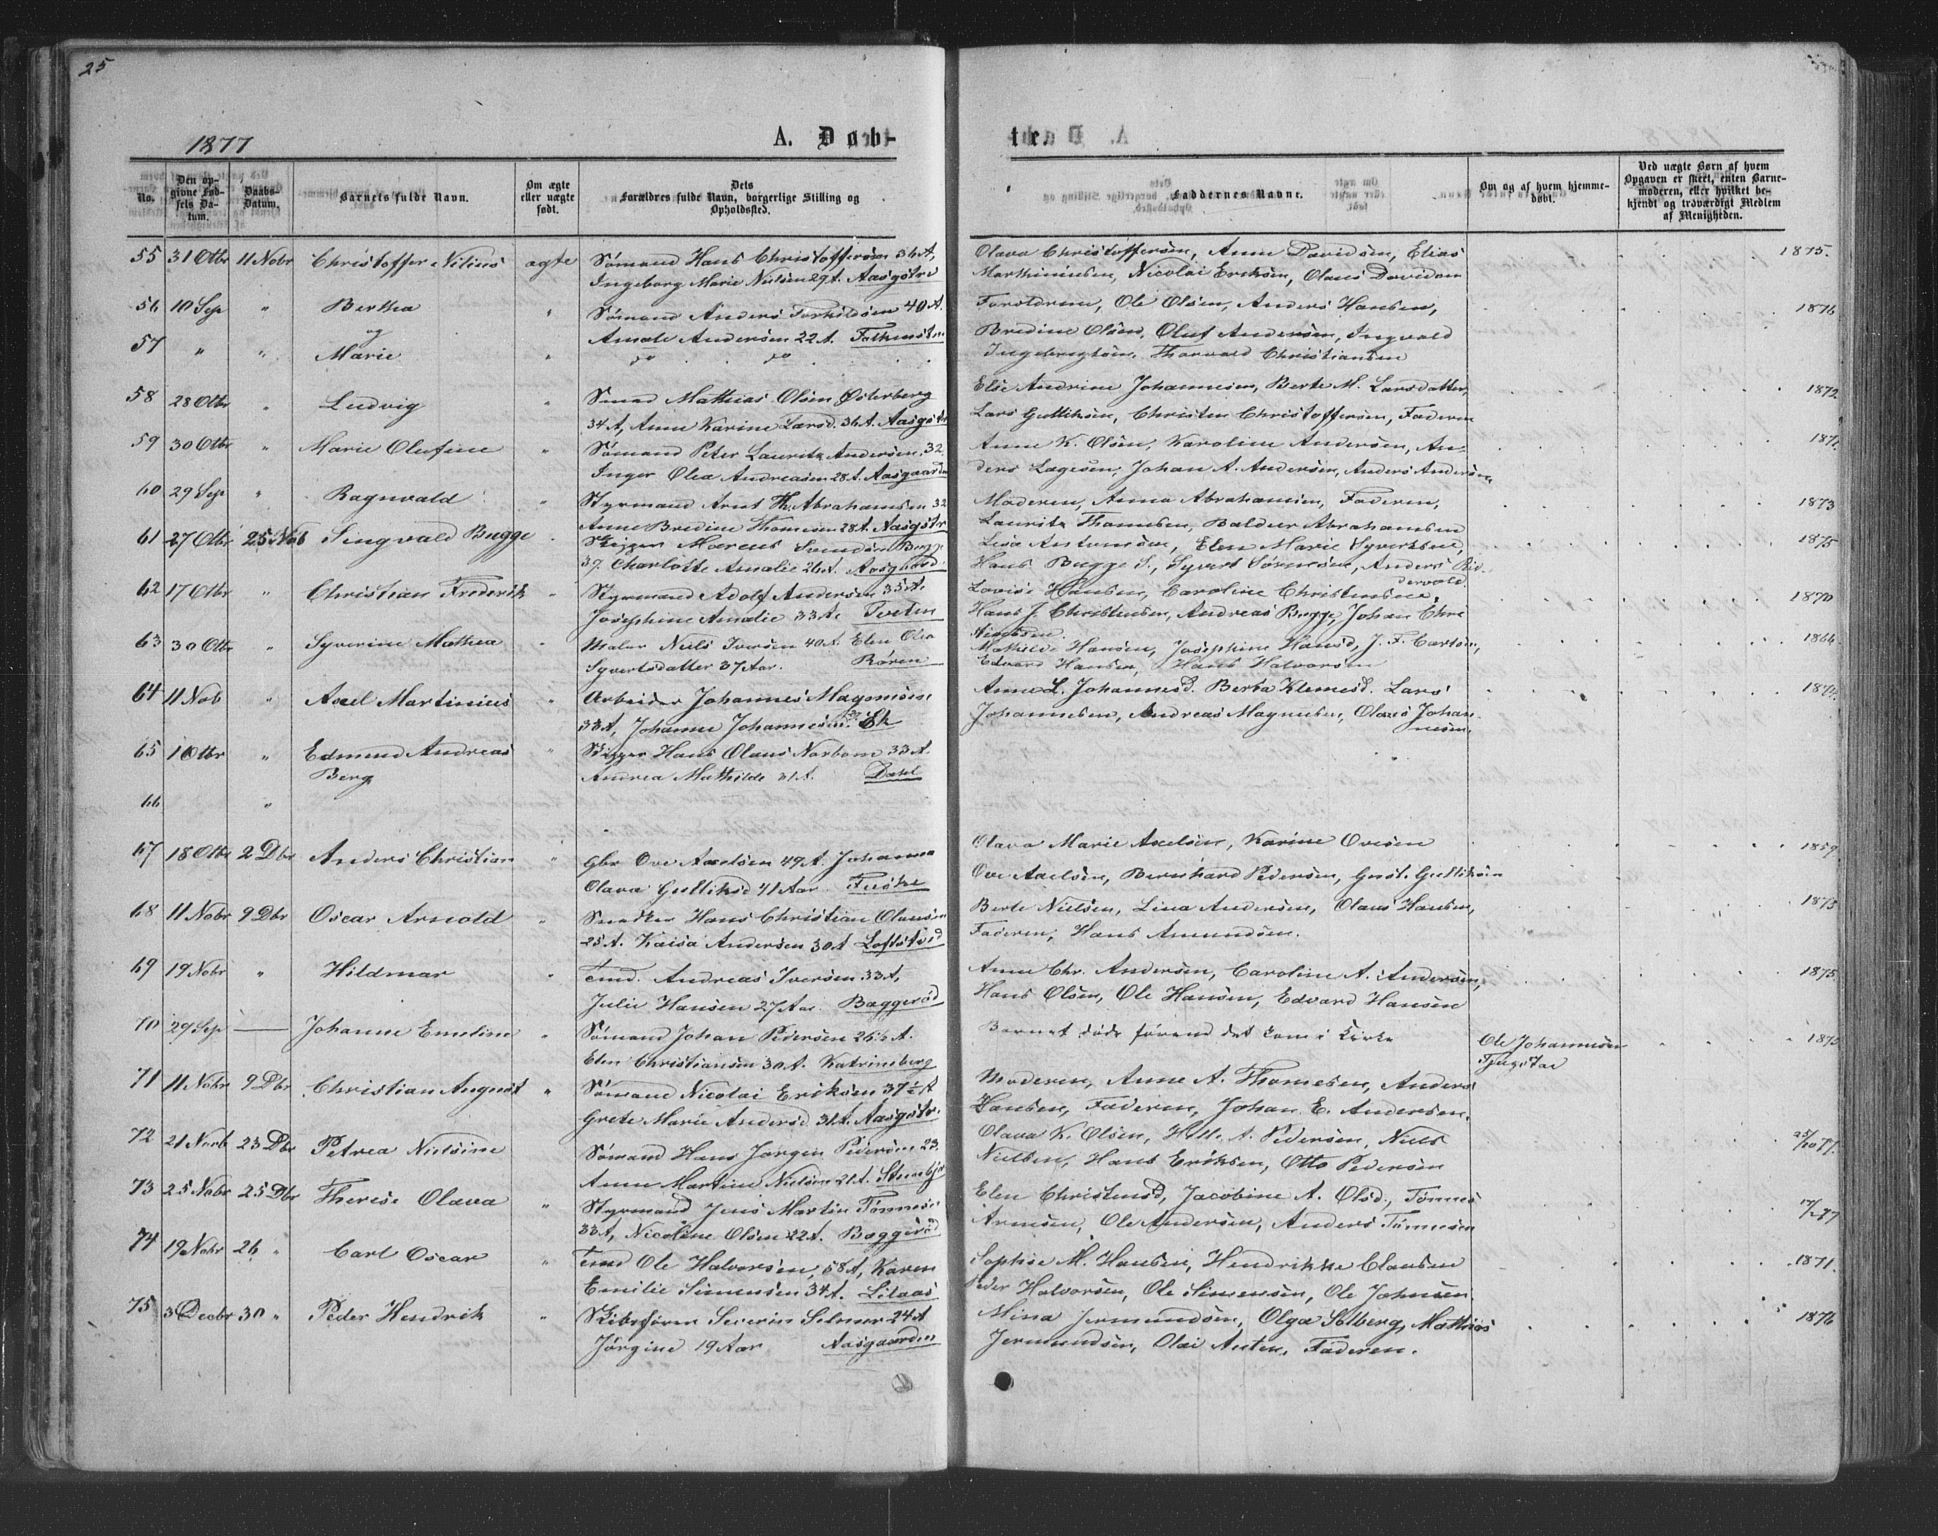 25
1877
A. Døb-
te.
No.
Den op-
givne Fød-
sels Da-
tum.
Daabs-
Datum.
Barnets fulde Navn.
Om ægte
eller uægte
født.
Dets
Forældres fulde Navn, borgerlige Stilling og
Opholdssted.
Faddernes Navne.
Om og af hvem hjemme-
døbt.
Ved uægte Børn af hvem
Opgaven er skeet, enten Barne-
moderen, eller hvilket be-
kjendt og troværdigt Medlem
af Menigheden.
55 31 Otbr 11 Nobr Christoffer Nilius ægte Sømand Hans Christoffersøn 36 A, Olava Christoffersen, Anne Davidsen, Elias 1875.
Ingeborg Marie Nielsen 29 A. Aasgstrd Marthiniusen, Nicolai Eriksen, Olaus Davidsen
56 10 Sep " Bertha " Sømand Anders Torkildsen 40 A. Forældrene, Ole Olsen, Anders Hansen, 1876
og Amale Andersen 22 A. Falkensten Bredine Olsen, Oluf Andersen, Ingvald
57 " " Marie " do do Ingebrigtsen, Thorvald Christiansen
58 28 Otbr " Ludvig " Smed Mathias Olsen Østerberg Else Andrine Johannesen, Berte M. Larsdatter, 1872
34 A, Anne Karine Larsd. 36 A. Aasgstr Lars Gulliksen, Christen Christoffersen, Faderen
59 30 Otbr " Marie Olufine " Sømand Peter Lauritz Andersen, 32 Anne K. Olsen, Karoline Andersen, An-
Inger Olea Andreasen 28 A. Aasgaarden ders Lagesen, Johan A. Andersen, Anders Andersen
60 29 Sep " Ragnvald " Styrmand Arnt Th. Abrahamsen 32 Moderen, Anna Abrahamsen, Faderen, 1873
Anne Bredine Thomesen 28 A. Aasgstr Lauritz Thomesen, Balduer Abrahamsen
61 27 Otbr 25 Nob Singvald Bugge " Skipper Marcus Svendsen Bugge Lisa Antonsen, Elen Marie Syvertsen, 1875
37. Charlotte Amalie 26 A. Aasgaard. Hans Bugge S., Syvert Sørensen, Anders Rid-
dervold
62 17 Otbr " Christian Frederik " Styrmand Adolf Andersen 35 A. Lovise Hansen, Caroline Christensen, 1870
Josephine Amalie 33 A. Tveten Hans J. Christensen, Andreas Bugge, Johan Chri
stiansen
63 30 Otbr " Syverine Mathea " Maler Niels Iversen 40 A. Elen Olea Mathilde Hansen, Josephine Hansd, J. F. Carlsen, 1866
Syvertsdatter 37 Aar. Røren Edvard Hansen, Hans Halvorsen
64 11 Nob " Axel Martinius " Arbeider Johannes Magnusen Anne L. Johannesd. Berta Klemesd. Lars
33 A, Johanne Johannesen 37 Ek Johannesen, Andreas Magnusen, Olaves Johan
nesen.
65 1 Otbr " Edmund Andreas " Skipper Hans Olaus Norbom 33 A.
Berg Andrea Mathilde 31 A. Dahl
66 "
67 18 Otbr 2 Dbr Anders Christian " Gbr Ove Axelsen 49 A. Johanna Olava Marie Axelsen, Karine Ovesen 1859
Olava Gulliksd 41 Aar. Fuske Ove Axelsen, Bernhard Pedersen, Gust. Gulliksen
68 11 Nobr 9 Dbr Oscar Arnold " Snedker Hans Christian Olausen Berte Nielsen, Lina Andersen, Olaus Hansen, 1875
25 A. Kaisa Andersen 30 A Loftstved Faderen, Hans Amundsen.
69 19 Nobr " Hildmar " Tmd. Andreas Iversen 33 A, Anne Chr. Andersen, Caroline A. Andersen, 1875
Julie Hansen 27 Aar. Baggerød Hans Olsen, Ole Hansen, Edvard Hansen
70 29 Sep — Johanne Emeline " Sømand Johan Pedersen 26½ A. Barnet døde førend det kom i Kirke Ole Johannesen 1875
Elen Christiansen 30 A. Katrineberg Tjugstøe
71 11 Nobr 9 Dbr Christian August " Sømand Nicolai Eriksen 37½ A Moderen, Anne A. Thomesen, Anders
Grete Marie Andersd 31 A. Aasgstr. Hansen, Faderen, Johan E. Andersen.
72 21 Norb 23 Dbr Petrea Nielsine Sømand Hans Jørgen Pedersen 23 Olava K. Olsen, Hell. A. Pedersen, Niels 25/10 77.
Anne Martine Nielsen 21 A. Stensbjr Nielsen, Hans Eriksen, Otto Pedersen
73 25 Nobr 25 Dbr Therese Olava " Styrmand Jens Martin Tønnese Elen Christensd, Jacobine A. Olsd., Tønnes
33 A, Nicoline Olsen 22 A. Baggerød Arnesen, Ole Andersen, Anders Tønnesen
74 19 Nobr 26 " Carl Oscar " Tmd Ole Halvorsen, 58 A, Karen Sophie M. Hansen, Hendrikke Clausen 1871.
Emilie Simensen 34 A. Lilaas Peder Halvorsen, Ole Simensen, Ole Johnsen
75 3 Decbr 30 " Peder Hendrik " Skibsfører Severin Selmer 24 A Mina Jermundsen, Olga Solberg, Mathias 1876
Jørgine 19 Aar Aasgaarden Jermundsen, Olai Anton, Faderen.